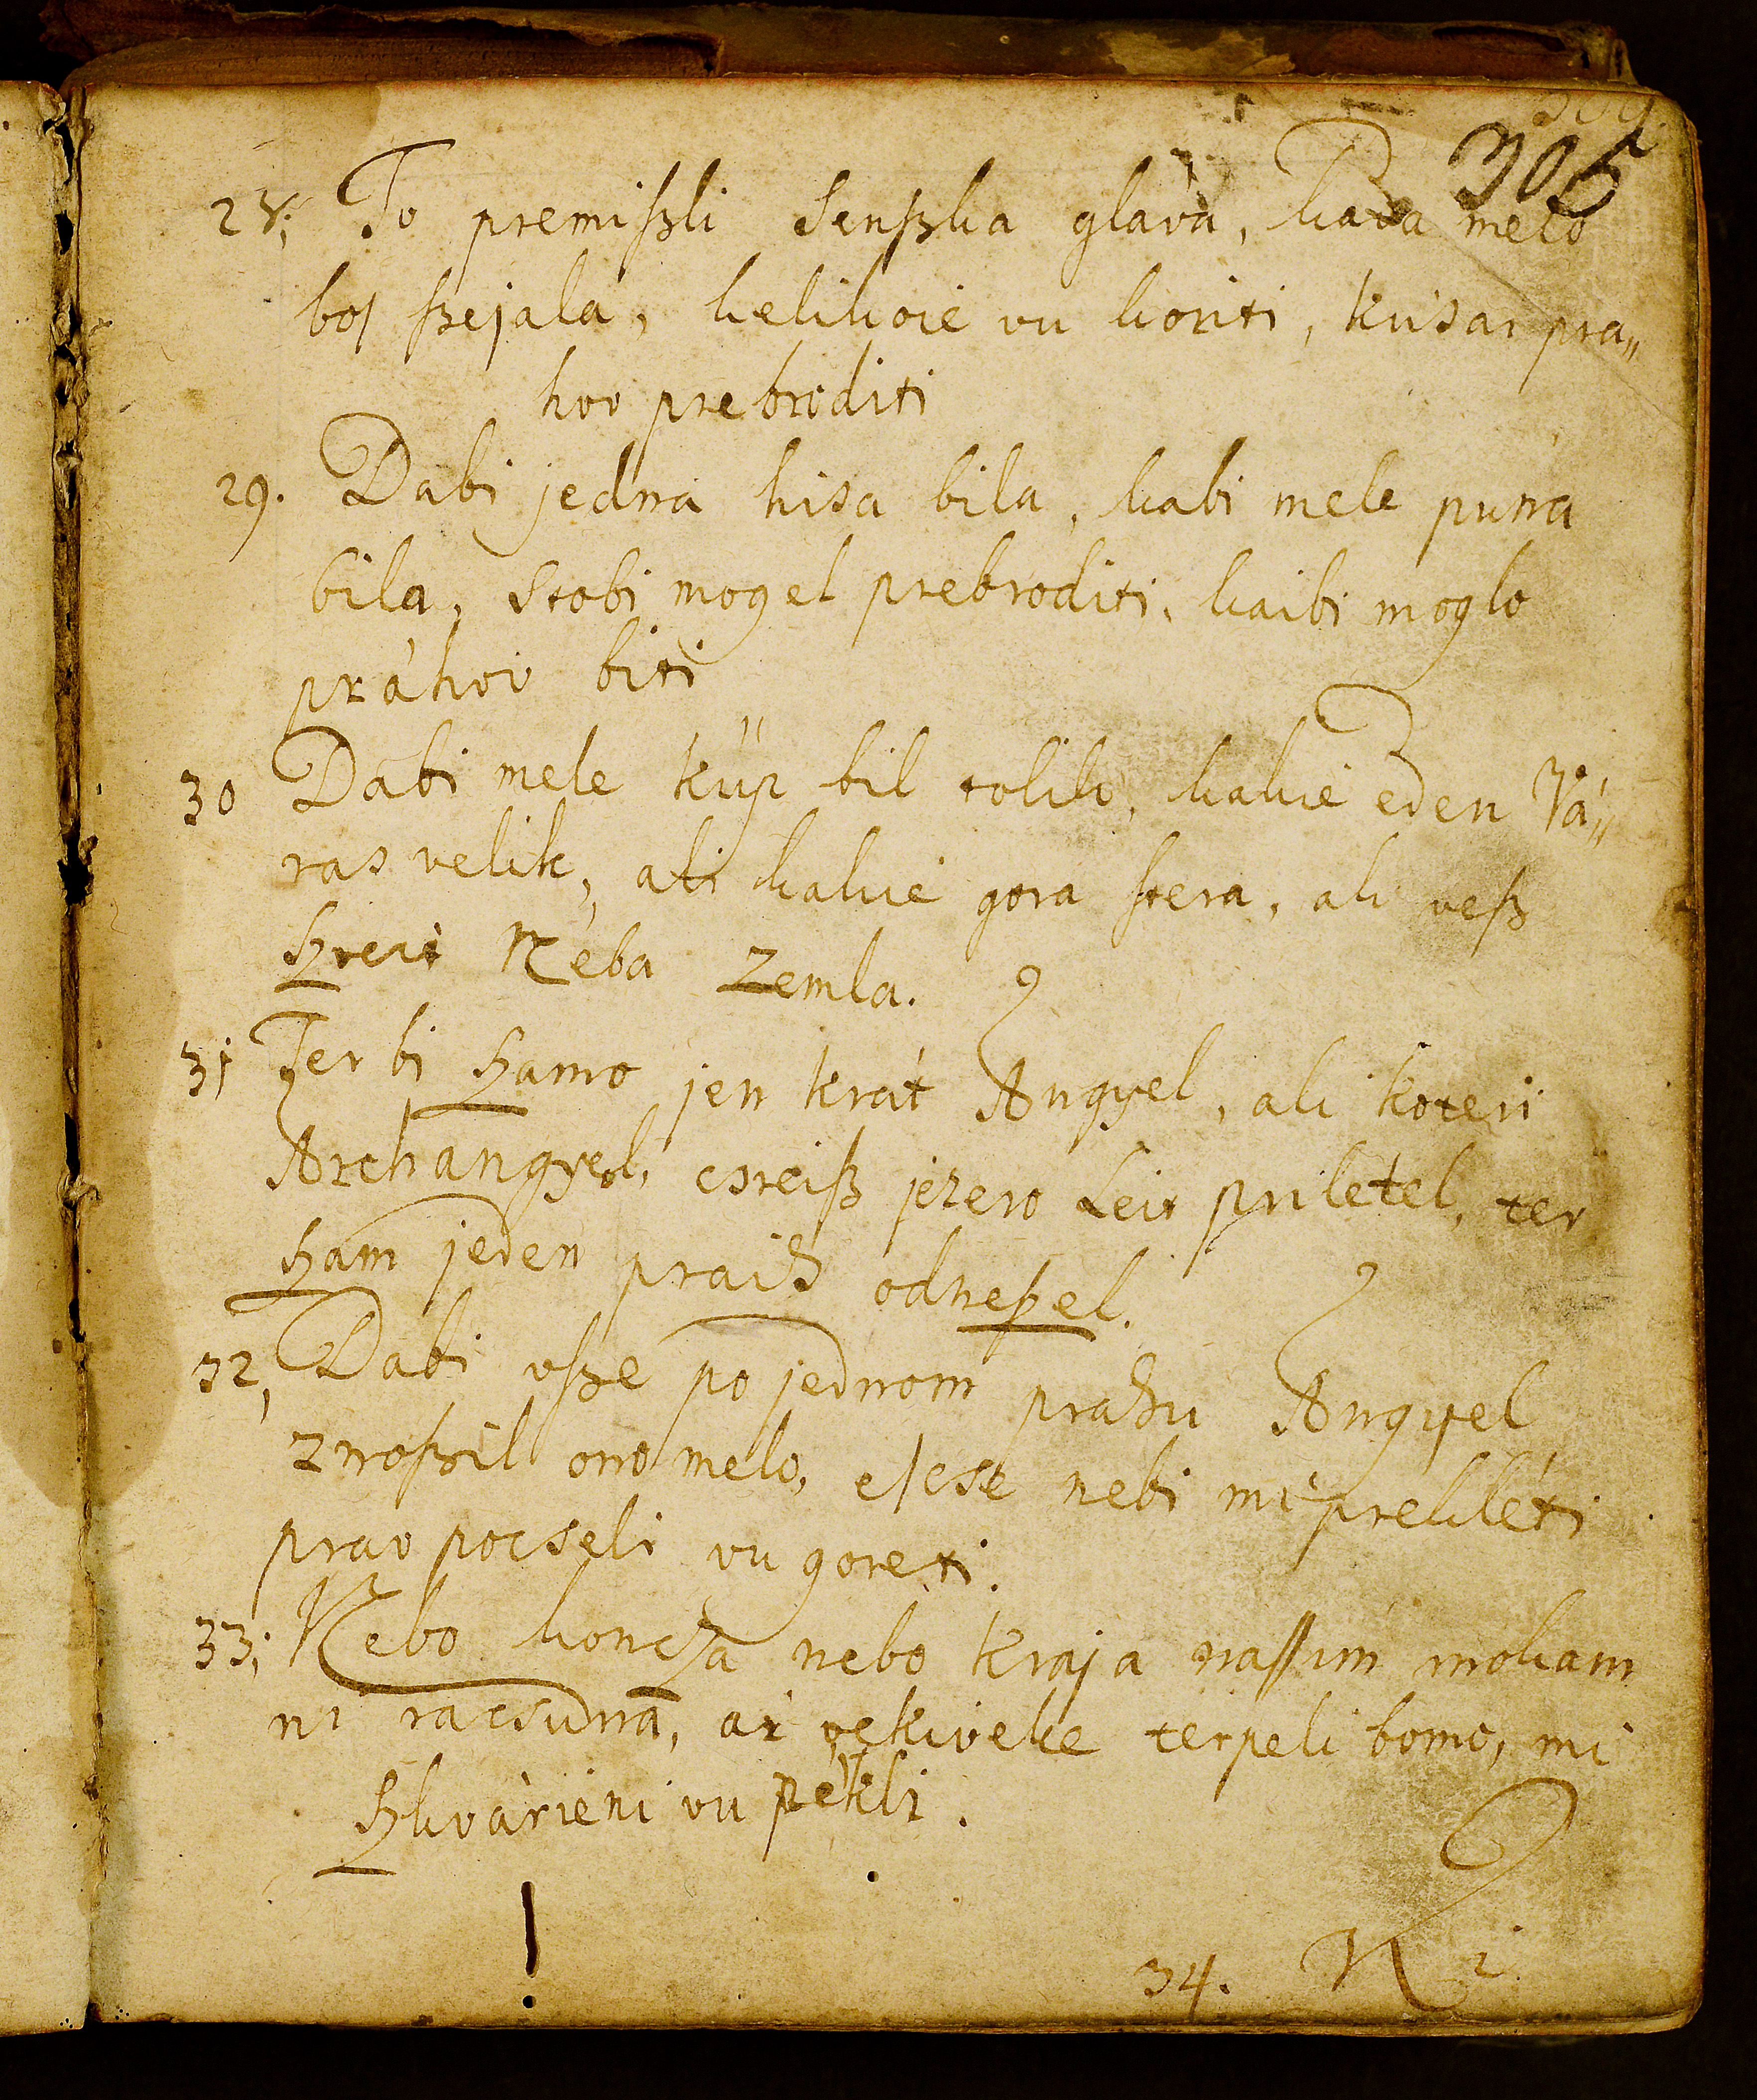 305
28; To premißli Senßka glàva, kada melo
boſ ßejala, kelikoie vu koriti, kuisai pra„
hov prebroditi
29. Dabi jedna hisa bila, kabi mele puna
bila, stobi mogel prebroditi, kaibi moglo
práhov biti
30 Dabi mele kup bil toliko, kakie eden Vá„
ras velik, ali kakie gora ſtera, ali veß
ßvei Neba Zemla.
31 Ter bi ßamo jen krát Angyel, ali koteri
Archangyel, csreiß jezero Leit priletel, ter
ßam jeden praih odneßel.
32, Dabi vße po jednom prahu Angyel
znoßil ono melo, eſcse nebi mi prekléti
prav pocseli vu goreti.
33; Nebo koncza nebo kraja naſſim mokam
ni racsuna, ar vekiveke terpeli bomo, mi
ßkvàrieni vu pekli.
34. Ni